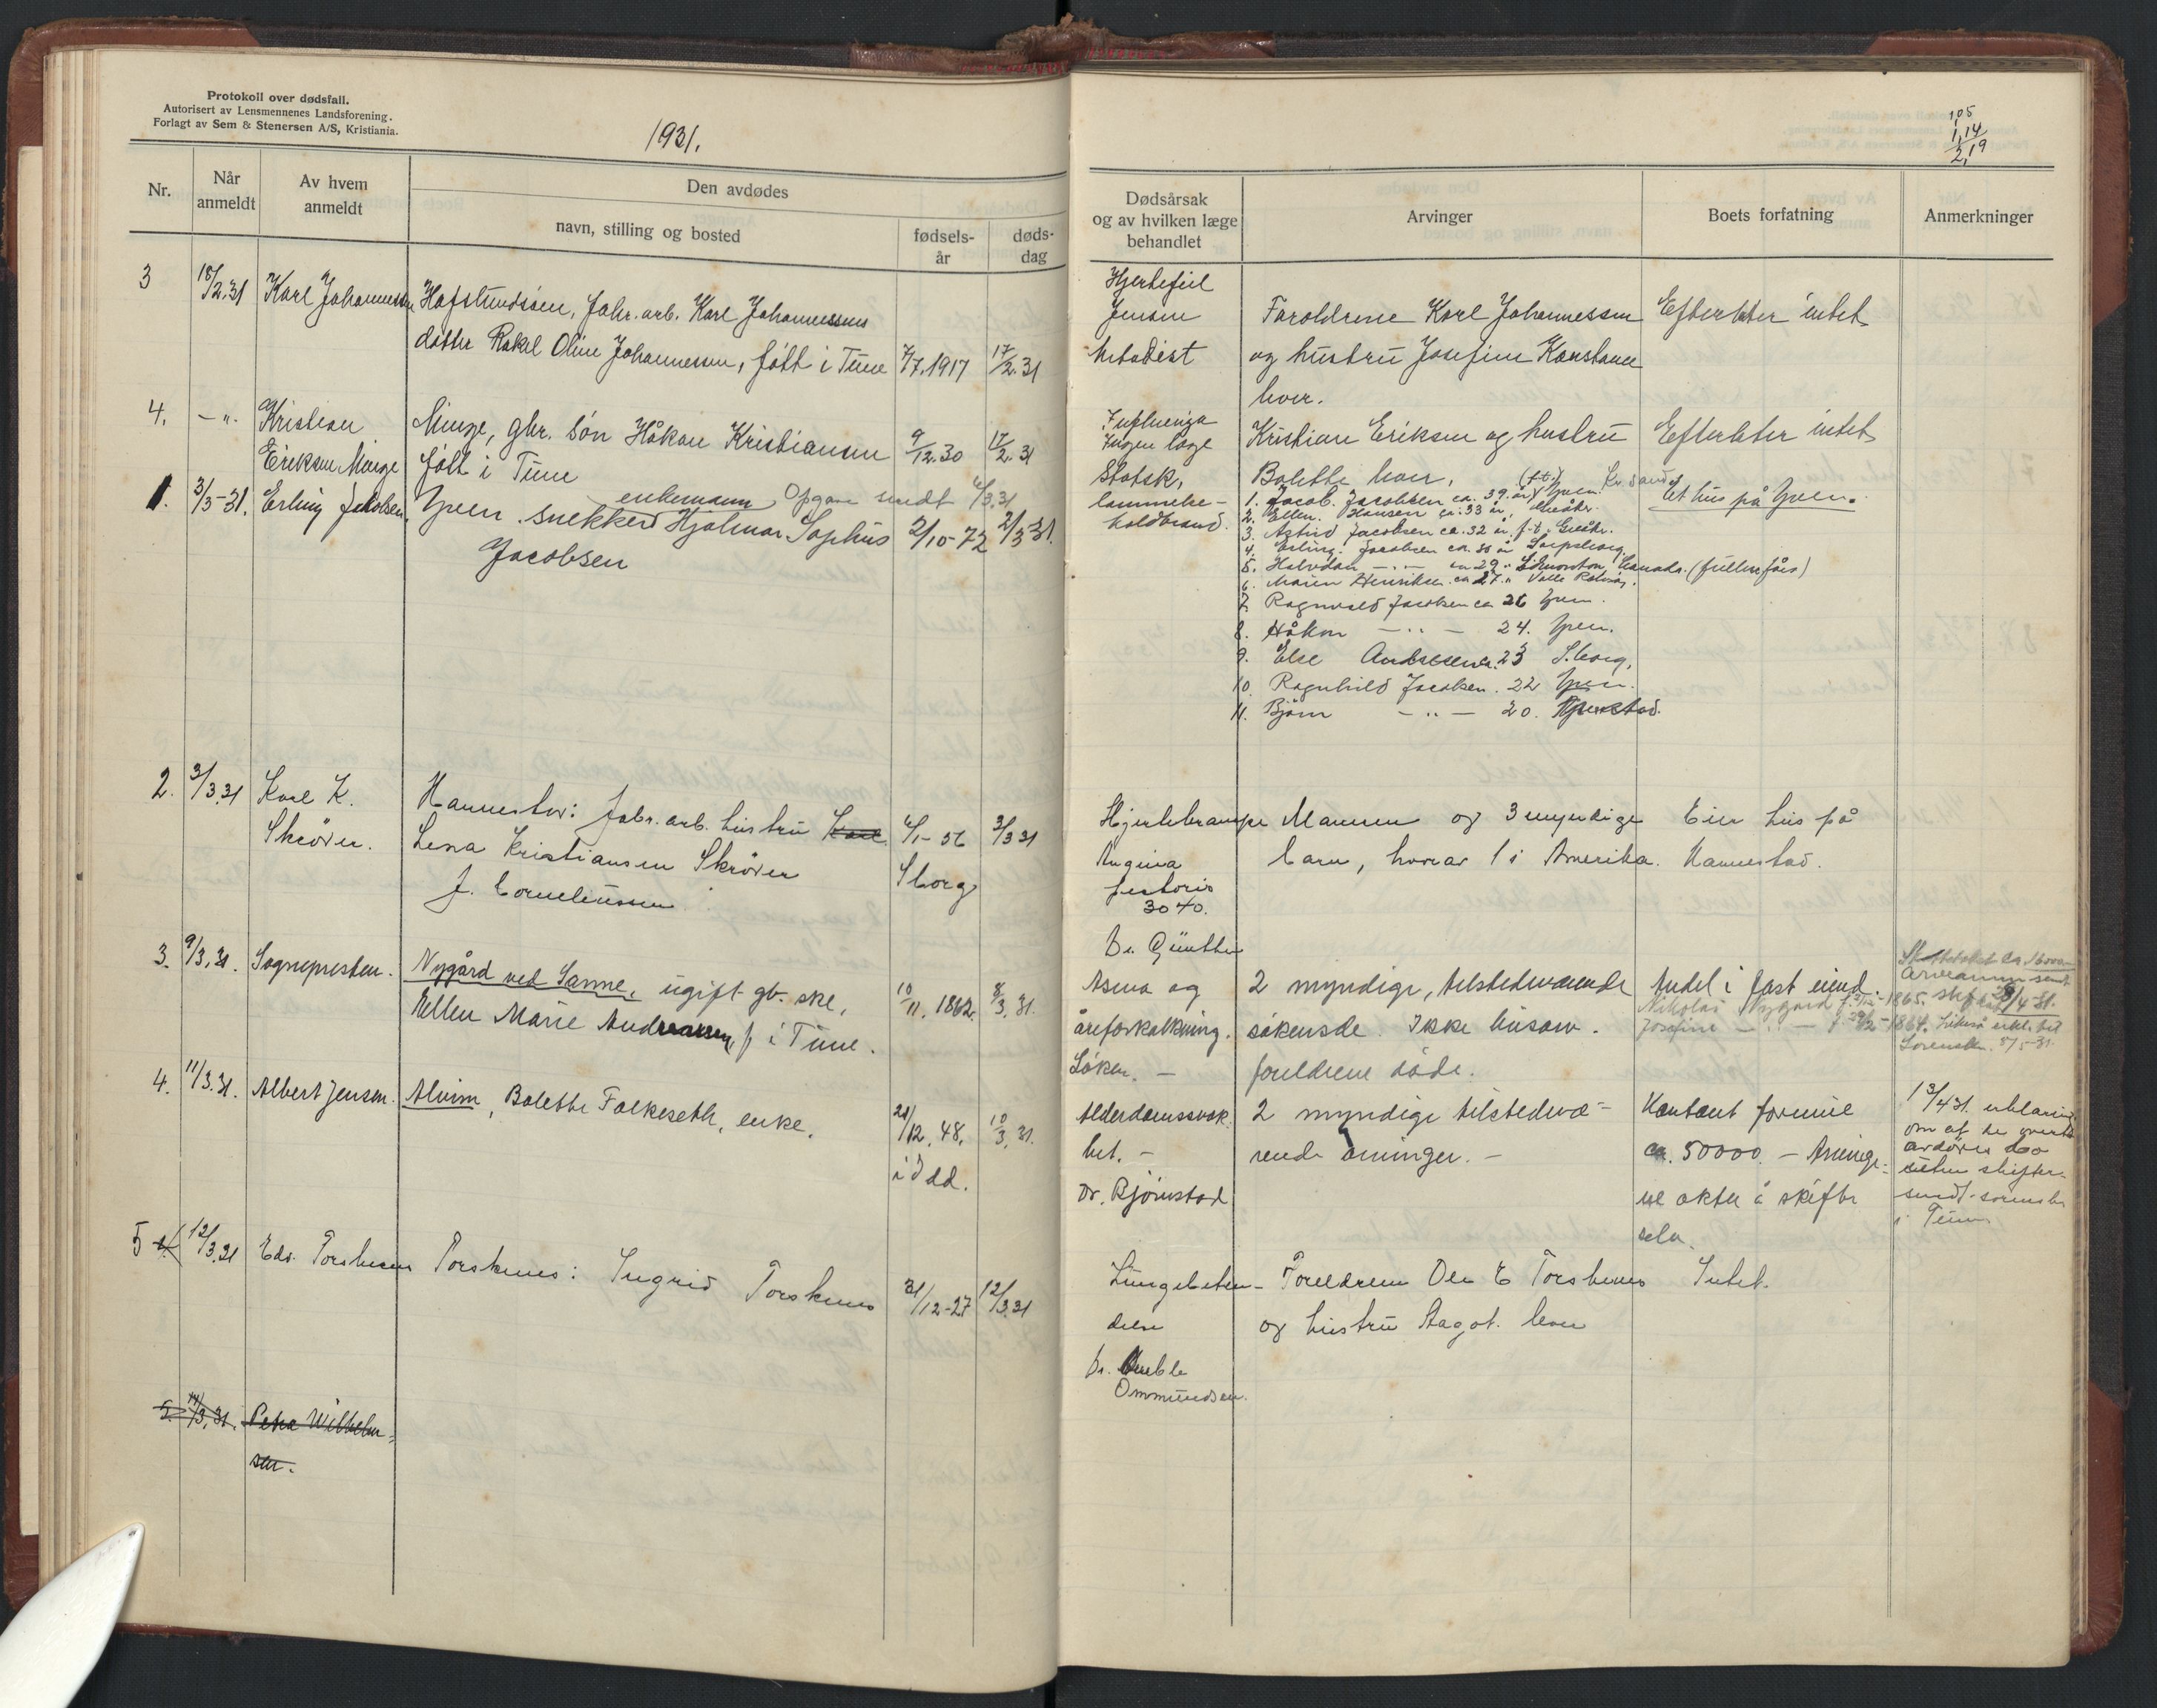 Protokoll over dødsfall.
Autorisert av Lensmennenes Landsforening.
Forlagt av Sem & Stenersen A/S, Kristiania.
1931.
Nr.
Når anmeldt
Av hvem anmeldt
Den avdødes
navn, stilling og bosted
fødsels-år
døds-dag
3
18/2.31
Karl Johannessen
Hafslundsøen, fabr. arb. Karl Johannessens
datter Rakel Oline Johannessen, født i Tune
7/7.1917
17/2.31
4.
— " -
Kristian
Eriksen Minge
Minge, gbr. søn Håkon Kristiansen
født i Tune
9/12.30
17/2.31
1.
3/3-31.
Erling Jakobsen.
enkemann Opgave sendt 4/3.31
Yven. snekker Hjalmar Sophus
Jacobsen
2/10-72
2/3-31.
2.
3/3.31
Karl K.
Skröder.
Hannestad: fabr. arb. hustru Karl
Lena Kristiansen Skröder
f. Corneliussen
4/1-56
Sborg
3/3 31
3.
9/3.31.
Sognepresten.
Nygård ved Sanne, ugift gb. ske,
Ellen Marie Andreassen, f i Tune.
10/11.1862.
8/3.31.
4.
11/3.31.
Albert Jensen.
Alvim, Bolette Falkeseth, enke.
21/12.48.
i Idd.
10/3.31.
5
12/3.31
Edv. Torsknes
Torsknes: Ingrid Torsknes
31/12-27
12/3.31
5.
14/3.31.
Petra Wilhelm-
sen.
105
1,14
2,19
Dødsårsak
og av hvilken læge
behandlet
Arvinger
Boets forfatning
Anmerkninger
Hjertefeil
Jensen
Metodist
Foreldrene Karl Johannessen
og hustru Josefine Konstance
lever.
Efterlater intet
Influenza
Ingen læge
Statsk,
Kristian Eriksen og hustru
Bolette lever.
Efterlater intet
lammelse-
koldbrand.
1. Jacob. Jacobsen ca. 39 år Yven.
2. Ellen. Hansen ca. 33 år, Greåker.
3. Astrid Jacobsen ca. 32 år f.t. Greåk.
4. Erling. Jacobsen ca. 30 år Sarpsborg.
5. Halvdan — " — ca 29 " Edmonton, Canada. (fullm. fåes)
6. Maren Henriksen ca 27. "
7. Ragnvald Jacobsen ca 26 Yven.
8. Håkon — " — 24. Yven.
9. Else Andresen ca. 23 S.borg,
10. Ragnhild Jacobsen. 22 Yven.
11. Bjørn — " — 20.
Et hus på Yven.
Hjertekrampe
Angina
pectoris
3040.
Dr. Günther
Mannen og 3 myndige
barn, hvorav 1 i Amerika.
Eier hus på
Hannestad.
Asma og
åreforkalkning.
Löken. —
2 myndige, tilstedeværende
søkensde. Ikke husarv.
foreldrene døde.
Andel i fast eiend.
Nikolai Nygård
1865.
Josefine — " —
1864.
Alderdomssvak-
het. —
Dr. Bjørnstad
2 myndige tilstedevæ-
rende arvinger. —
Kontant formue
ca. 50000. — Arvinge-
ne akter å skifte
selv.
13/4 31. erklæring
om at de overt.
avdødes bo
uten skifte-
sendt sorenskr.
i Tune
Lungebeten-
delse
Dr.
Ommundsen.
Foreldrene Ole E Torsknes
og hustru Aagot. lever
Intet.